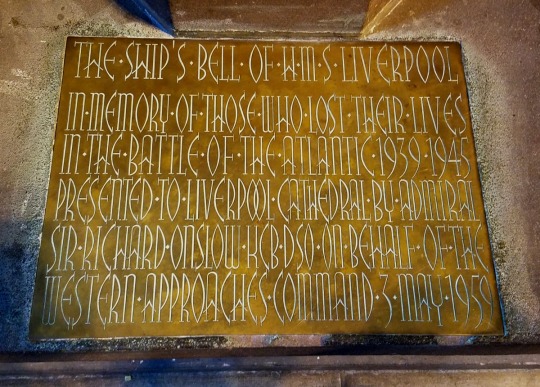 THE·SHIP'S·BELL·OF·H·M·S·LIVERPOOL
IN·MEMORY·OF·THOSE·WHO·LOST·THEIR·LIVES
IN·THE·BATTLE·OF·THE·ATLANTIC·1939·1945
PRESENTED·TO·LIVERPOOL·CATHEDRAL·BY·ADMIRAL
SIR·RICHARD·ONSLOW·KCB·DSO·ON·BEHALF·OF·THE
WESTERN·APPROACHES·COMMAND·3·MAY·1959